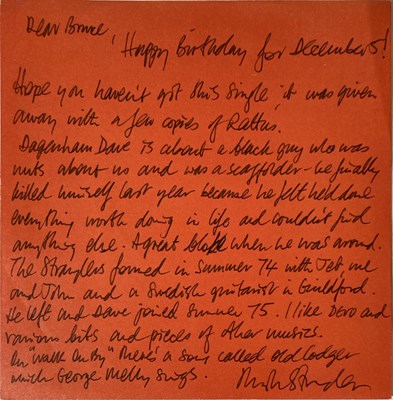 Dear Bruce,
Happy Birthday for December 5!
Hope you haven't got this single, it was given
away with a few copies of Rattus.
Dagenham Dave is about a black guy who was
nuts about us and was a scaffolder - he finally
killed himself last year because he felt he'd done
everything worth doing in life and couldn't find
anything else. A great bloke when he was around.
The Stranglers formed in summer 74 with Jet, me
and John and a Swedish guitarist in Guildford.
He left and Dave joined summer 75. I like Devo and
various bits and pieces of other musics.
On "Walk On By" there's a song called old Codger
which George Melly sings.